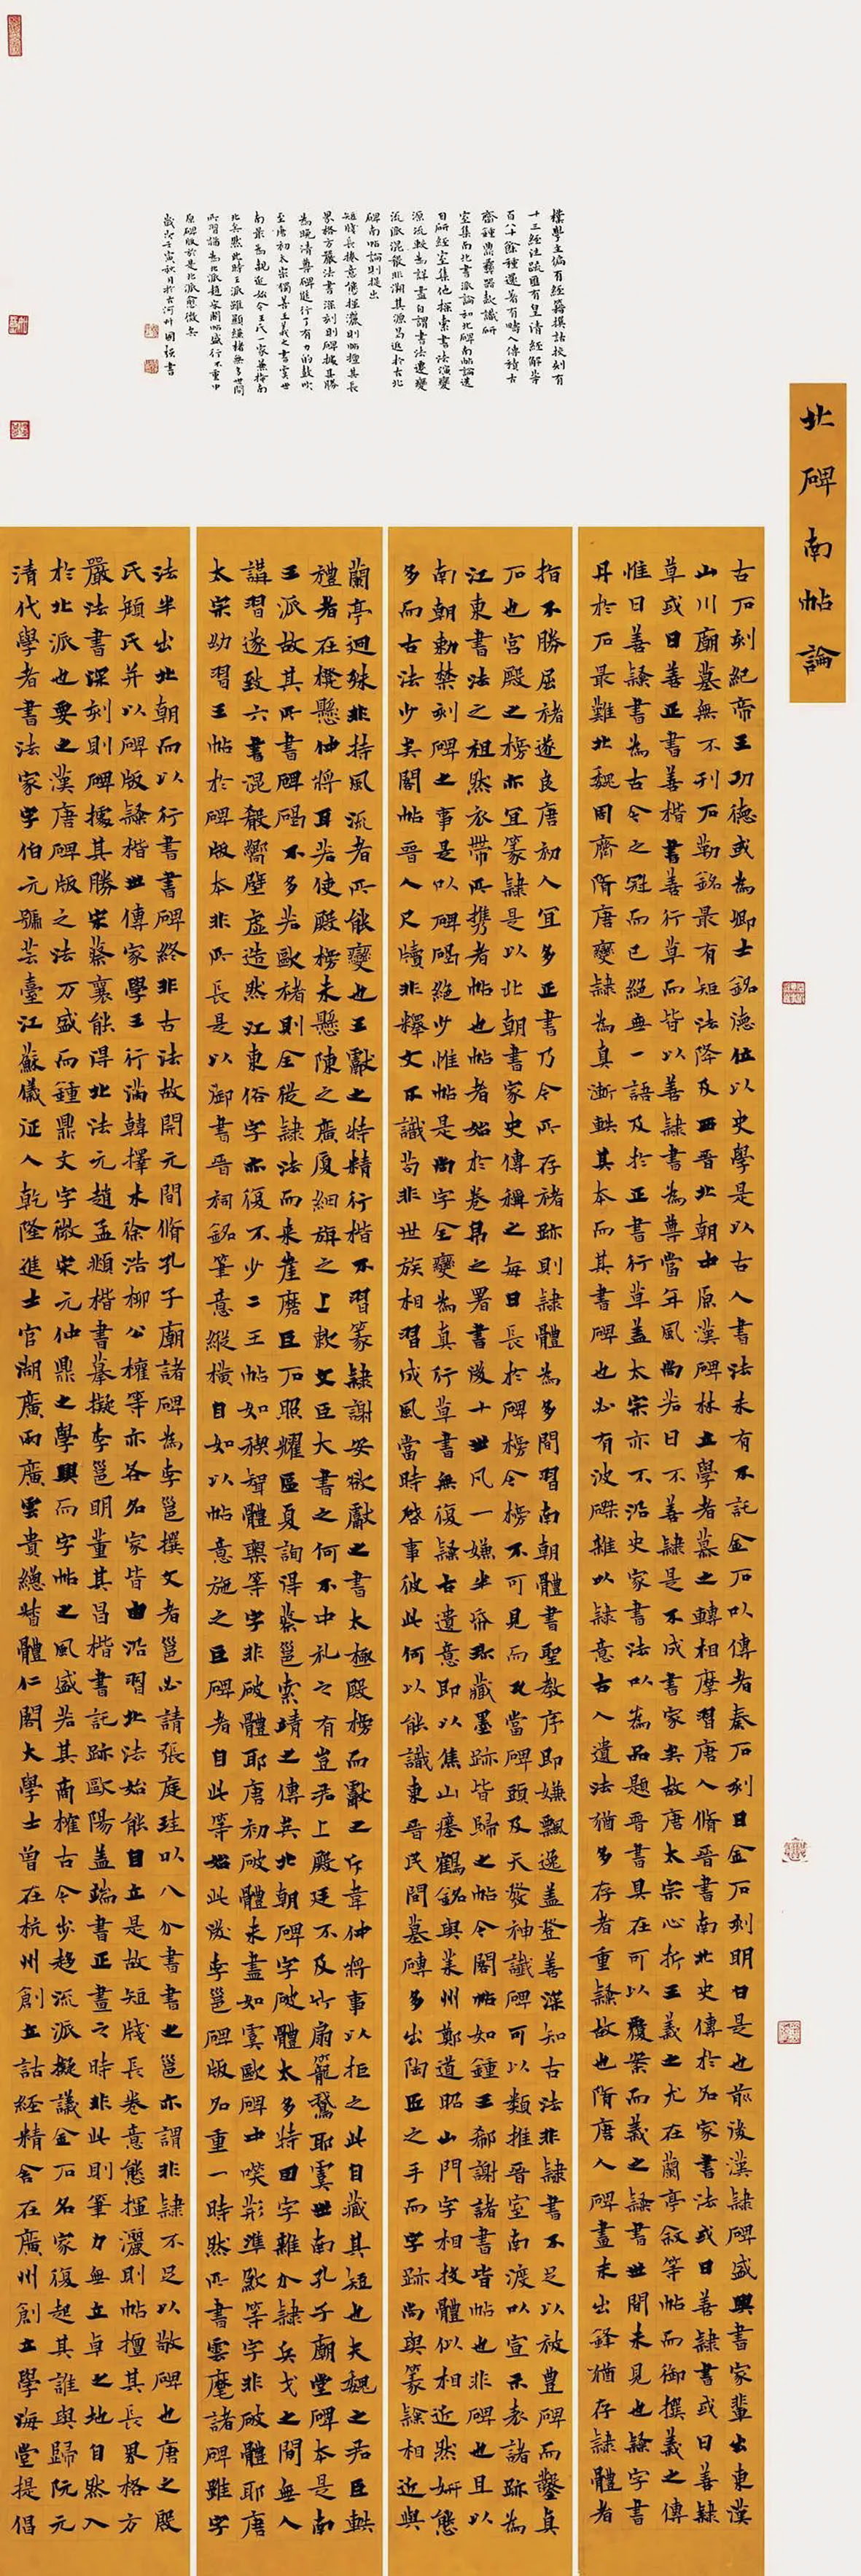 北碑南帖論
古石刻紀帝王功德或為卿士銘德位以史學是以古人書法未有不託金石以傳者秦石刻曰金石刻明白是也前後漢隸碑盛興書家輩出東漢
山川廟墓無不刊石勒銘最有矩法降及西晉北朝中原漢碑林立學者慕之轉相摩習唐人脩晉書南北史傳於名家書法或曰善隸書或曰善隸
草或曰善正書善楷書善行草而皆以善隸書為尊當年風尚若曰不善隸是不成書家矣故唐太宗心折王羲之尤在蘭亭敘等帖而御撰羲之傳
惟曰善隸書為古今之冠而已絕無一語及於正書行草蓋太宗亦不沿史家書法以為品題晉書具在可以覆案而羲之隸書世間未見也隸字書
丹於石最難北魏周齊隋唐變隸為真漸軼其本而其書碑也必有波磔雜以隸意古人遺法猶多存者重隸故也隋唐人碑畫末出鋒猶存隸體者
指不勝屈褚遂良唐初人宜多正書乃今所存褚跡則隸體為多間習南朝體書聖教序即嫌飄逸蓋登善深知古法非隸書不足以被豐碑而鑿真
石也宮殿之榜亦宜篆隸是以北朝書家史傳稱之每曰長於碑榜今榜不可見而及當碑頭及天發神讖碑可以類推晉室南渡以宣示表諸跡為
江東書法之祖然衣帶所攜者帖也帖者始於卷帛之署書後十世凡一縑半帋珍藏墨跡皆歸之帖今閣帖如鍾王郗謝諸書皆帖也非碑也且以
南朝勅禁刻碑之事是以碑碣絕少惟帖是尚字全變為真行草書無復隸古遺意即以焦山瘞鶴銘與萊州鄭道昭山門字相挍體似相近然妍態
多而古法少矣閣帖晉人尺牘非釋文不識苟非世族相習成風當時啟事彼此何以能識東晉民間墓磚多出陶匠之手而字跡尚與篆隸相近與
蘭亭迥殊非持風流者所能變也王獻之特精行楷不習篆隸謝安欲獻之書太極殿榜而獻之斥韋仲將事以拒之此自藏其短也夫魏之君臣軼
禮者在櫈懸仲將耳若使殿榜未懸陳之廣廈細旃之上敕文臣大書之何不中礼之有豈君上殿廷不及竹扇籠鵞耶虞世南孔子廟堂碑本是南
王派故其所書碑碣不多若歐褚則全從隸法而來崖磨巨石照耀區夏詢得蔡邕索靖之傳矣北朝碑字破體太多特因字雜分隸兵戈之間無人
講習遂致六書混殽嚮壁虛造然江東俗字亦復不少二王帖如稧聟體禦等字非破體耶唐初破體未盡如虞歐碑中準歎等字非破體耶唐
太宗幼習王帖於碑版本非所長是以御書晉祠銘筆意縱橫自如以帖意施之巨碑者自此等始此後李邕碑版名重一時然所書雲麾諸碑雖字
法半出北朝而以行書書碑終非古法故開元間脩孔子廟諸碑為李邕撰文者邕必請張庭珪以八分書書之邕亦謂非隸不足以敬碑也唐之殷
氏顏氏并以碑版隸楷世傳家學王行滿韓擇木徐浩柳公權等亦各名家皆由沿習北法始能自立是故短牋長卷意態揮灑則帖擅其長界格方
嚴法書深刻則碑據其勝宋蔡襄能得北法元趙孟頫楷書摹擬李邕明董其昌楷書託跡歐陽蓋端書正畫之時非此則筆力無立卓之地自然入
於北派也要之漢唐碑版之法万盛而鍾鼎文字微宋元仲鼎之學興而字帖之風盛若其商榷古今步趨流派擬議金石名家復起其誰與歸阮元
清代學者書法家字伯元號芸臺江蘇儀征人乾隆進士官湖廣兩廣雲貴總督體仁閣大學士曾在杭州創立詁經精舍在廣州創立學海堂提倡
樸學主編有經籍撰詁校刻有
十三經注疏匯有皇清經解等
百八十餘種還著有疇人傳積古
齋鐘鼎彝器款識研
室集南北書派論和北碑南帖論選
自研經室集他探索書法演變
源流較為詳盡自謂書法遷變
流派混散非溯其源曷返於古北
碑南帖論則提出
短牋長捲意態揮灑則帖擅其長
界格方嚴法書深刻則碑據其勝
為晚清尊碑進行了有力的鼓吹
至唐初太宗獨善王羲之書虞世
南最為親近始令王氏一家兼掩南
北矣然此時王派雖顯縑楮無多世間
所習猶為北派趙宋閣帖盛行不重中
原碑版於是北派愈微矣
歲次壬寅秋月於古河州國強書